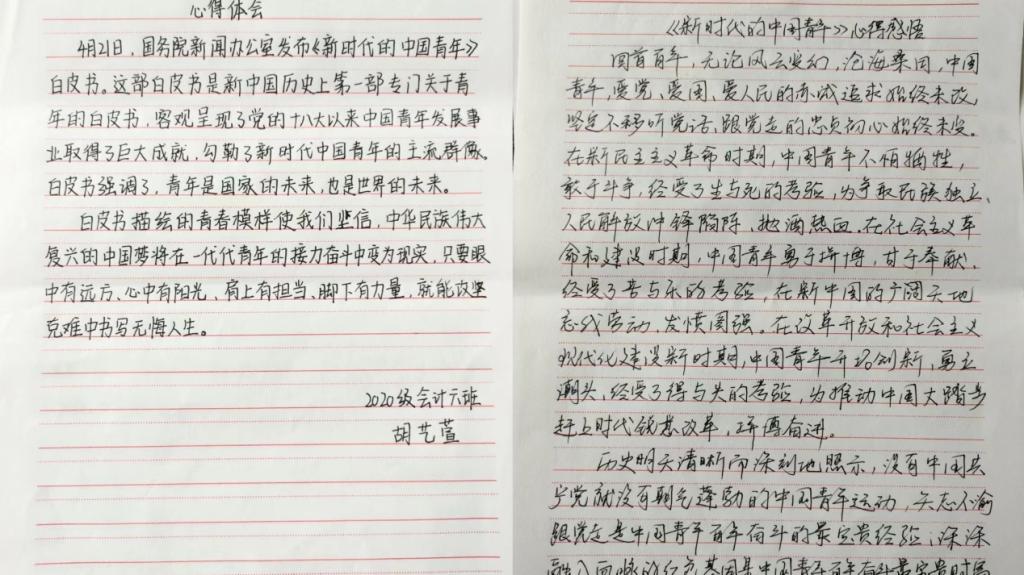 心得体会
4月21日，国务院新闻办公室发布《新时代的中国青年》
白皮书。这部白皮书是新中国历史上第一部专门关于青
年的白皮书，客观呈现了党的十八大以来中国青年发展事
业取得了巨大成就，勾勒了新时代中国青年的主流群像。
白皮书强调了，青年是国家的未来，也是世界的未来。
白皮书描绘的青春模样使我们坚信，中华民族伟大
复兴的中国梦将在一代代青年的接力奋斗中变为现实，只要眼
中有远方、心中有阳光、肩上有担当、脚下有力量，就能攻坚
克难中书写无悔人生。
2020级会计六班
胡艺萱
《新时代的中国青年》心得感悟
回首百年，无论风云变幻，沧海桑田，中国
青年，爱党、爱国、爱人民的赤诚追求始终未改，
坚定不移听党话、跟党走的忠贞初心始终未变。
在新民主主义革命时期，中国青年不怕牺牲，
敢于斗争，经受了生与死的考验，为争取民族独立、
人民解放冲锋陷阵、抛洒热血。在社会主义革
命和建设时期，中国青年勇于拼搏，甘于奉献，
经受了苦与乐的考验，在新中国的广阔天地
忘我劳动、发愤图强。在改革开放和社会主义
现代化建设新时期，中国青年开拓创新，勇立
潮头，经受了得与失的考验，为推动中国大踏步
赶上时代锐意改革，拼搏奋进。
历史明天清晰而深刻地照示，没有中国共
产党就没有朝气蓬勃的中国青年运动，矢志不渝
跟党走是中国青年百年奋斗的最宝贵经验；深深
融入血脉的红色基因是中国青年百年奋斗最宝贵财富